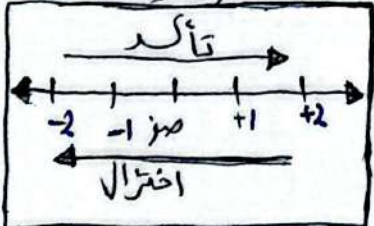 تأكسد
-2 -1 صفر +1 +2
اختزال